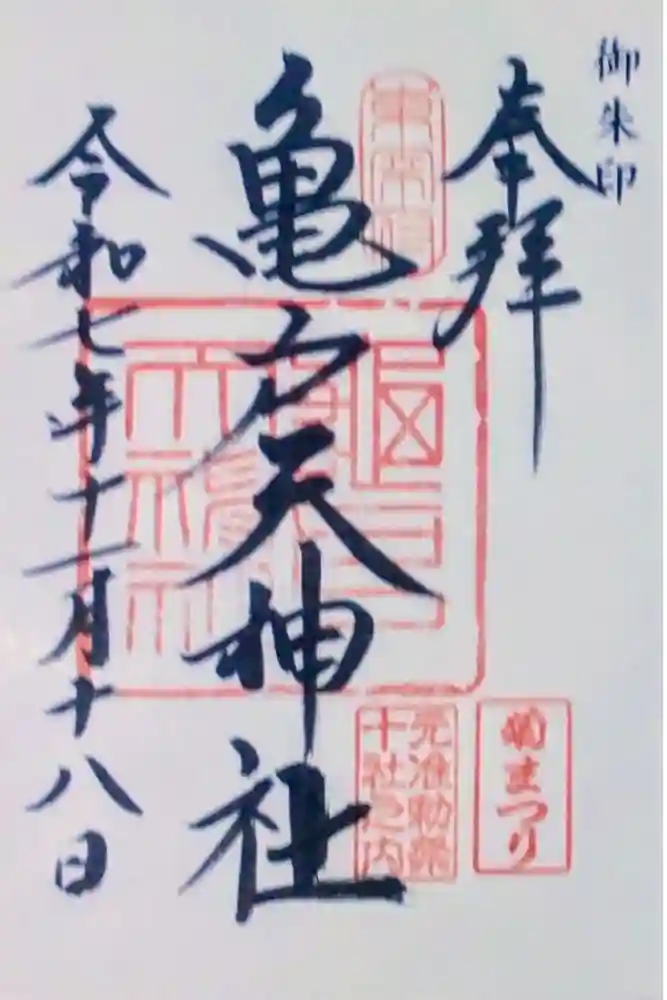 御朱印
奉拝
亀戸天神社
令和七年十一月十八日
元准勅祭
十社之内
菊まつり